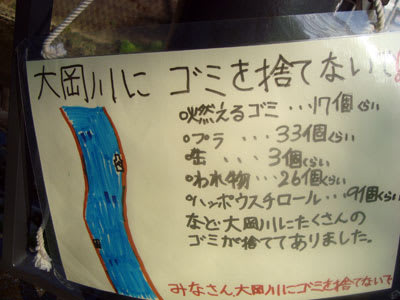 大岡川に ゴミを捨てないで
・燃えるゴミ・・・17個くらい
・プラ ・・・ 33個くらい
・缶 ・・・ 3個くらい
・われ物・・・26個くらい
・ハッポウスチロール・・・91個くらい
など大岡川にたくさんの
ゴミが捨ててありました。
みなさん大岡川にゴミを捨てないで